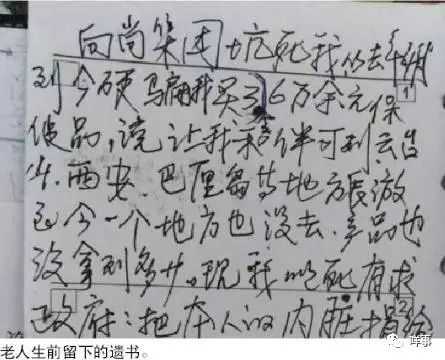 向尚集团坑死我从去年
到今硬骗我买了6万余元保
健品,说让我和伴可到云台
山.西安.巴厘岛等地方旅激
至今一个地方也没去.产品也
没拿到多少.现我以死有求
政府:把本人的内脏捐给
1
2
老人生前留下的遗书。
咩事